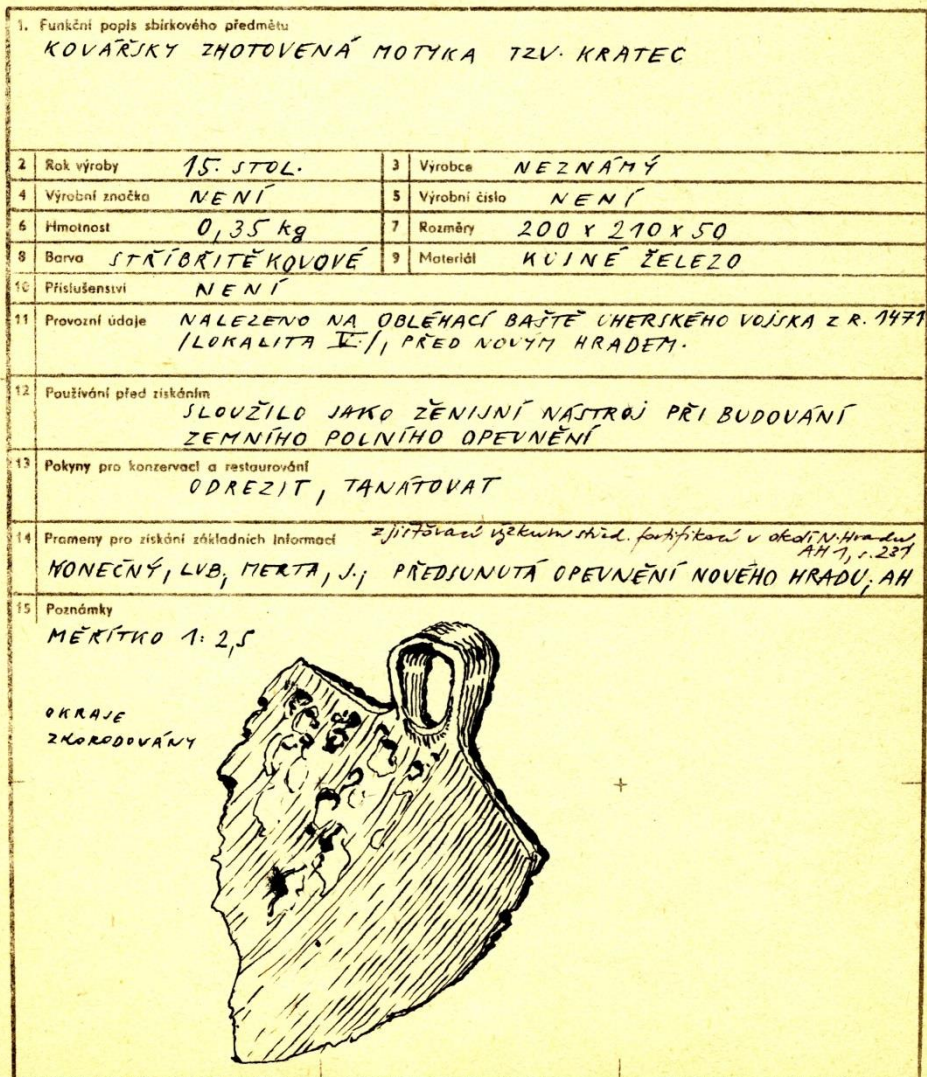 1. Funkční popis sbírkového předmětu
KOVÁŘSKY ZHOTOVENÁ MOTYKA TZV. KRATEC
2 Rok výroby 15. STOL. 3 Výrobce NEZNÁMÝ
4 Výrobní značka NENÍ 5 Výrobní číslo NENÍ
6 Hmotnost 0,35 kg 7 Rozměry 200 x 210 x 50
8 Barva STŘÍBŘITĚ KOVOVÉ 9 Materiál KUJNÉ ŽELEZO
10 Příslušenství NENÍ
11 Provozní údaje NALEZENO NA OBLÉHACÍ BAŠTĚ UHERSKÉHO VOJSKA Z R. 1471
/LOKALITA V./, PŘED NOVÝM HRADEM.
12 Používání před získáním
SLOUŽILO JAKO ŽENIJNÍ NÁSTROJ PŘI BUDOVÁNÍ
ZEMNÍHO POLNÍHO OPEVNĚNÍ
13 Pokyny pro konzervaci a restaurování
ODREZIT, TANÁTOVAT
zjišťovací výzkum střed. fortifikací v okolí N. Hradu
14 Prameny pro získání základních informací
AH 1, s. 231
KONEČNÝ, LUB; MERTA, J.; PŘEDSUNUTÁ OPEVNĚNÍ NOVÉHO HRADU; AH
15 Poznámky
MĚŘÍTKO 1: 2,5
OKRAJE
ZKORODOVÁNY